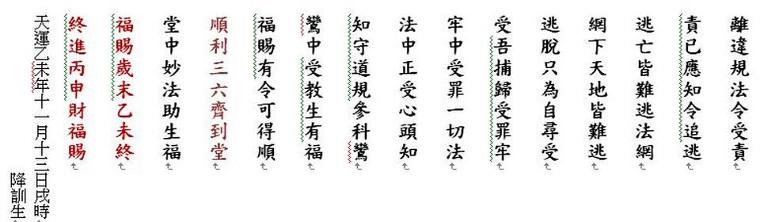 離違規法令受責
責已應知令追逃
逃亡皆難逃法網
網下天地皆難逃
逃脫只為自尋受
受吾捕歸受罪牢
牢中受罪一切法
法中正受心頭知
知守道規參科鸞
鸞中受教生有福
福賜有令可得順
順利三六齊到堂
堂中妙法助生福
福賜歲末乙未終
終進丙申財福賜
天運乙未年十一月十三日戌時
降訓生